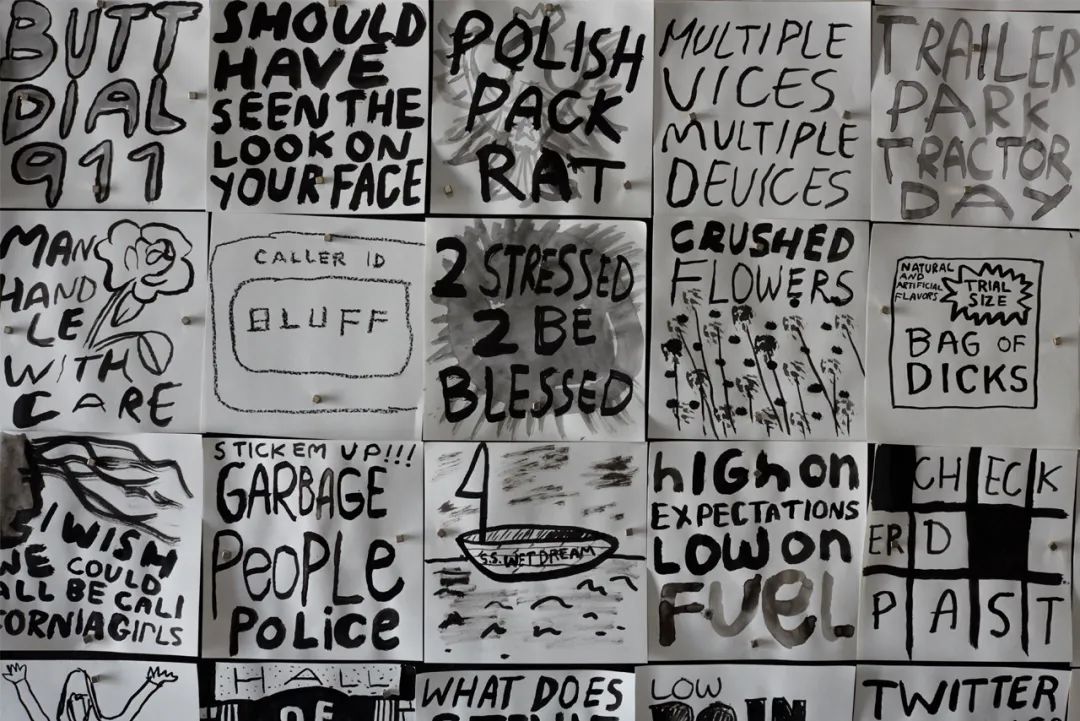 BUTT
DIAL
911
SHOULD
HAVE
SEEN THE
LOOK ON
YOUR FACE
POLISH
PACK
RAT
MULTIPLE
VICES
MULTIPLE
DEVICES
TRAILER
PARK
TRACTOR
DAY
MAN
HAND
LE
WITH
CARE
CALLER ID
BLUFF
2 STRESSED
2 BE
BLESSED
CRUSHED
FLOWERS
NATURAL
AND
ARTIFICIAL
FLAVORS
TRIAL
SIZE
BAG OF
DICKS
I WISH
WE COULD
ALL BE CALI
FORNIA GIRLS
STICK EM UP!!!
GARBAGE
PEOPLE
POLICE
S.S. WET DREAM
HIGH ON
EXPECTATIONS
LOW ON
FUEL
CHECK
ERD
PAST
HALL
OF
WHAT DOES
LOW
TWITTER